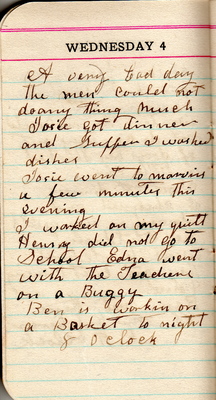 WEDNESDAY 4
A very bad day
the men could not
do any thing much
Josie got dinner
and Supper I washed
dishes
Josie went to marvins
a few minutes this
evening
I worked on my quilt
Henry did not go to
School Edna went
with the Teachers
on a Buggy
Ben is workin on
a Basket to night
8 O clock